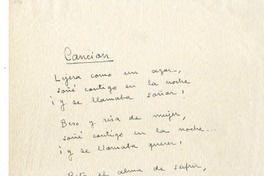 Cancion
Lijera como un azor...,
soñé contigo en la noche
¡ y se llamaba soñar !
Beso y risa de mujer,
soñé contigo en la noche...
¡ y se llamaba querer !
el alma de sufrir,